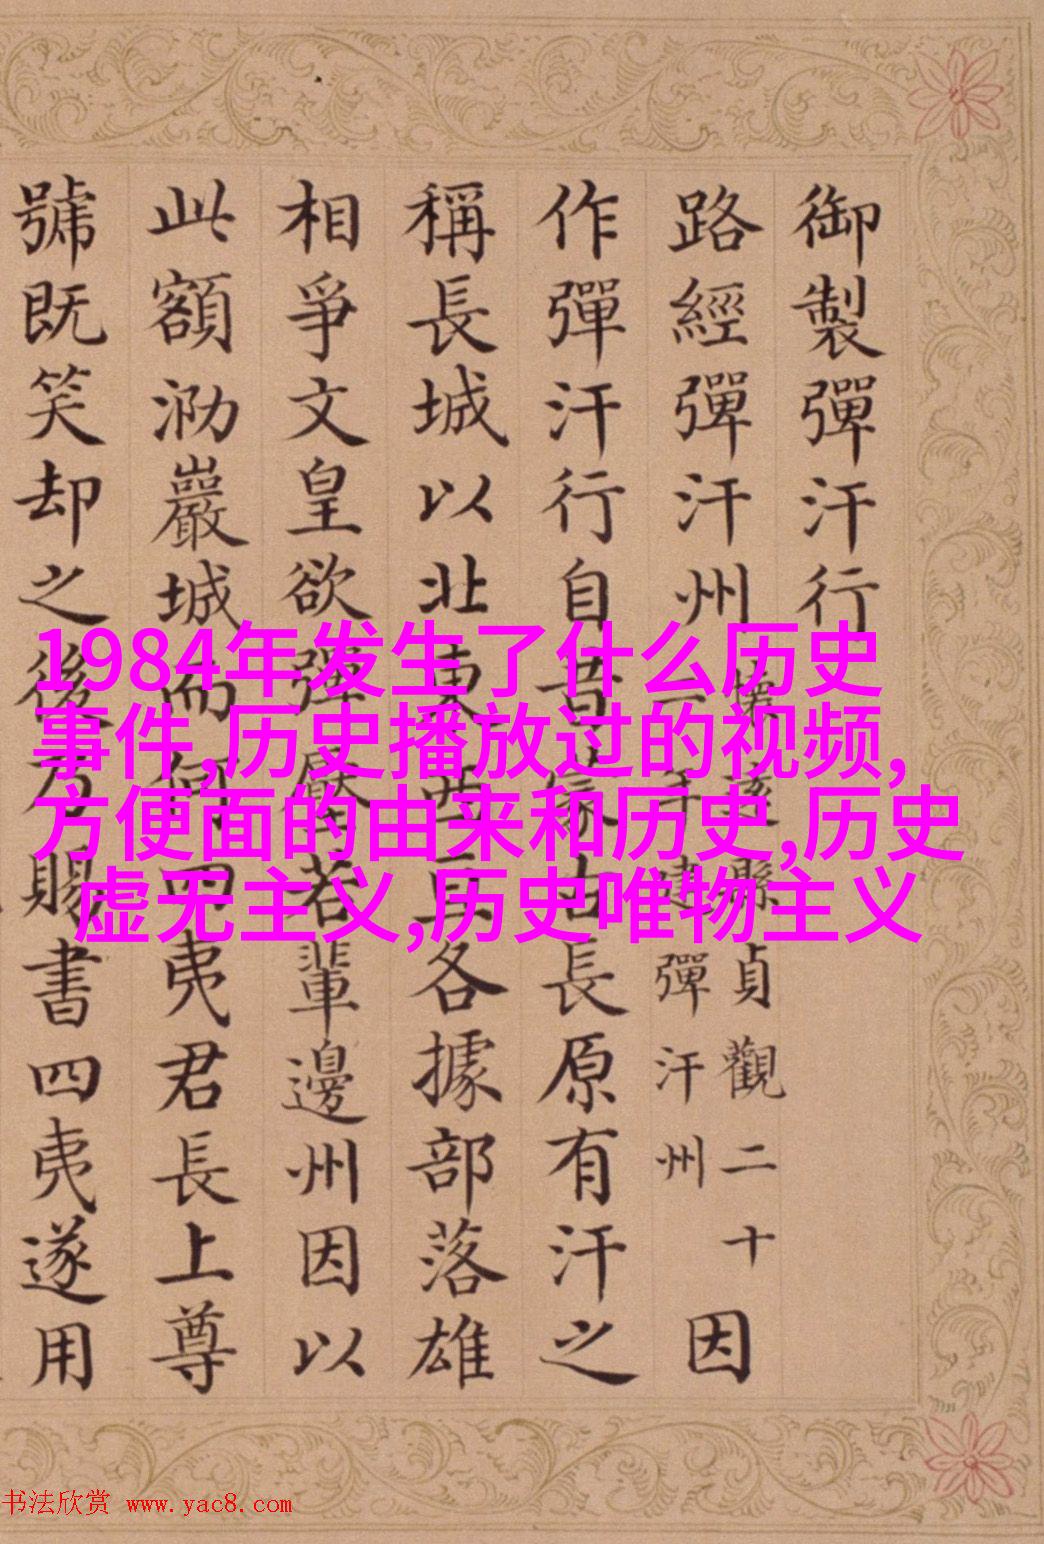 御製彈汗行
路經彈汗州
懷遠縣貞觀二十
二年建彈汗州
因
作彈汗行自昔蒙古長原有汗之
稱長城以北東西互各據部落雄
相爭文皇欲彈厭若輩邊州因以
此額泐巖城而何四夷君長上尊
號既笑却之後乃賜書四夷遂用
1984年发生了什么历史
事件,历史播放过的视频,
方便面的由来和历史,历史
虚无主义,历史唯物主义
书法欣赏 www.yac8.com